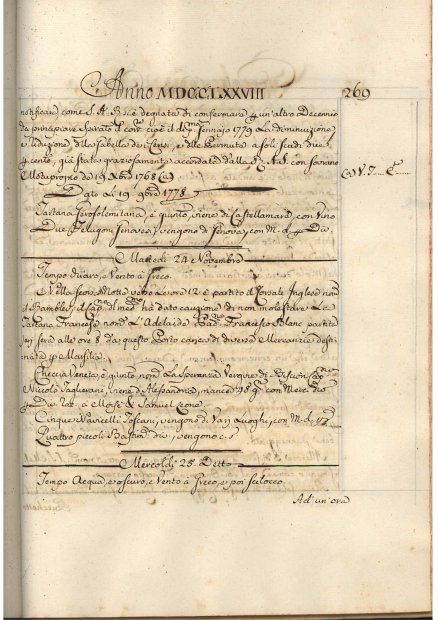 Anno MDCCLXXVIII
269
notificare, come S. A. R. si è degnata di confermare un'altro Decennio
da principiare spirato il corr. cioè il dì p.mo Gennajo 1779 la diminuzione
e riduzione della Gabella dei e delle Permute a soli Scudi due
per cento, già stata graziosamente accordata dalla R. A. S. con sovrano
Motuproprio de 19 1768 (a)
(a) V. T.
Dato li 19 9bre 1778
Tartana Gerosolemitana, è quinto, viene di Castellamare, con Vino
Due Feluconi Genovesi, vengono di Genova, con M. d.
Martedì 24 Novembre
Tempo chiaro, e Vento à Greco.
Nella scorsa Notte verso le ore 12 è partito il Corsale Inglese nom.
il Cap. del med.mo ha dato cauzione di non molestare la
Tartana Francese nom. L'Adelaide Pad. Francesco Blanc partita
jeri sera alle ore 8 da questo Porto carica di diverse Mercanzie desti-
nata p Marsilia
Checcia Veneta, è quinto nom. La Speranza Vergine di
Niccolò Taglievani, viene di Alessandria, manca 98 g. con Merci
à Moisè & Samuel Leone.
Cinque Navicelli Toscani, vengono di Varj Luoghi, con M. d.
Quattro piccoli Bastim. div. vengono c. s.
Mercoldì 25 Detto
Tempo Acqua, e oscuro, e Vento à Greco, e poi Scilocco.
Ad un'ora